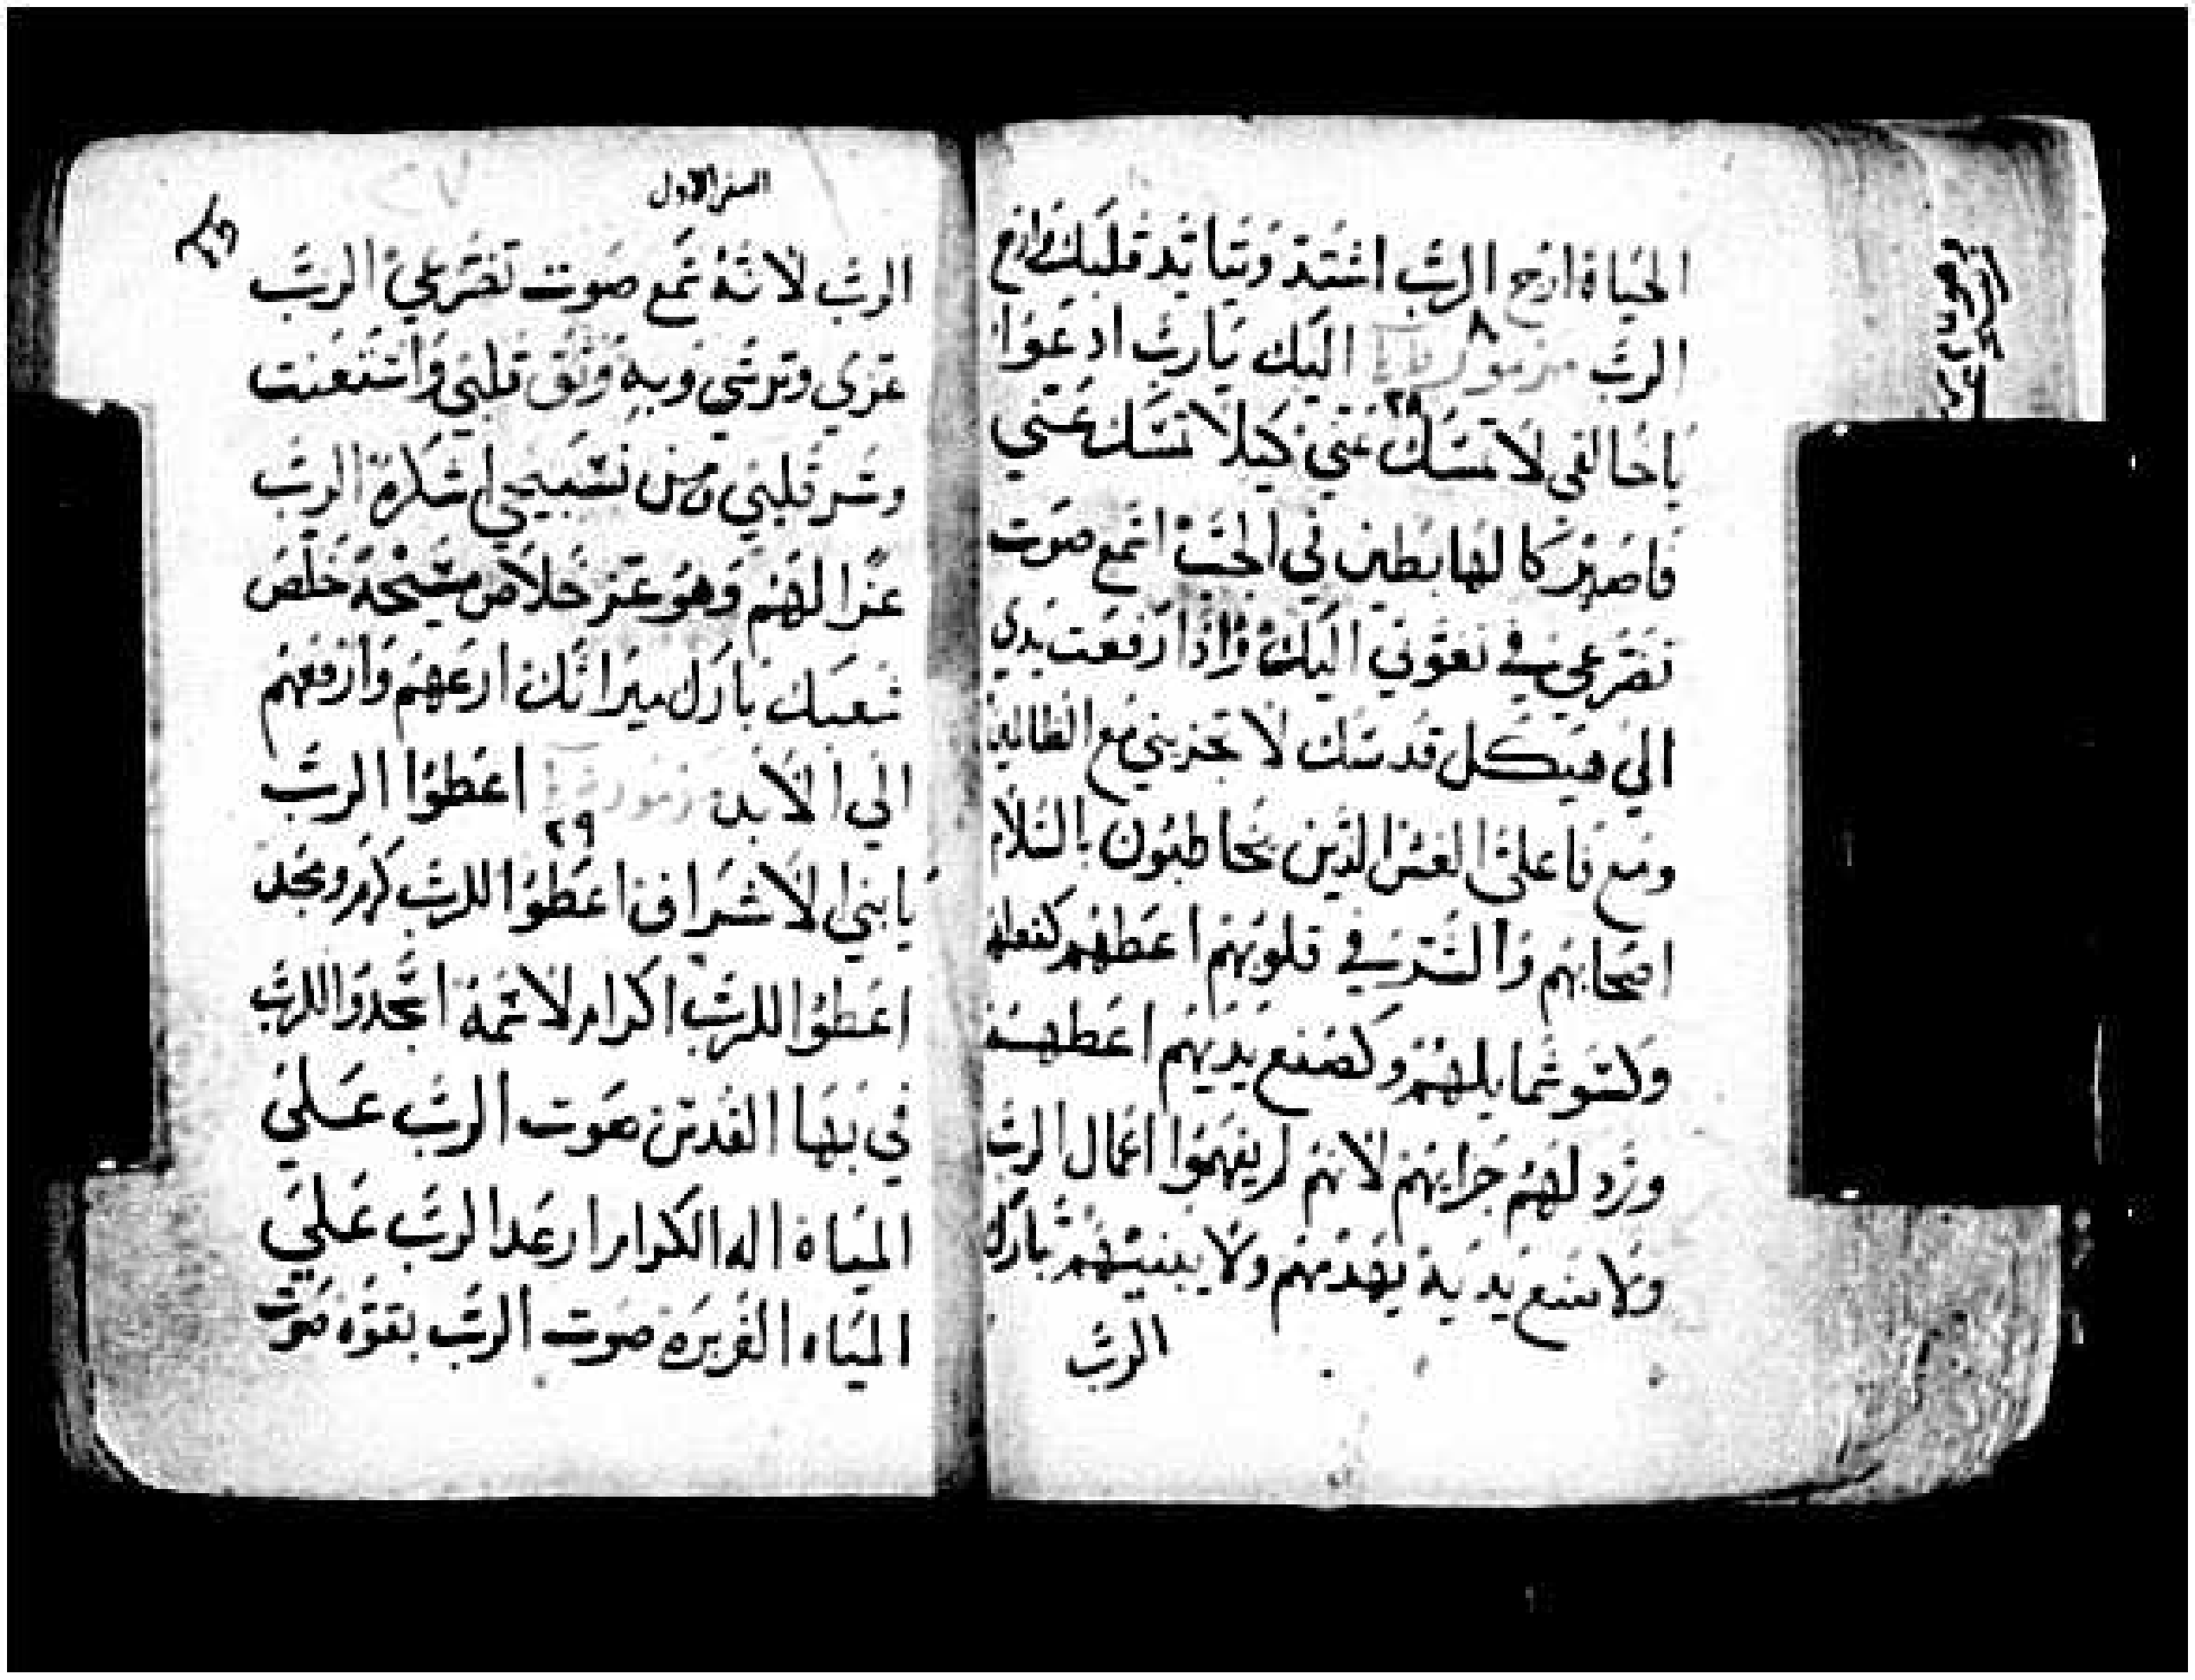 الحياة ارج الرب اشتد ويتايد قلبك وارج
الرب مزمور ٢٨ اليك يارب ادعوا
ياخالقي لا تمسك عني كيلا تمسك عني
فاصير كالهابطين في الجب اسمع صوت
تضرعي في نغوتي اليك واذا رفعت يدي
الي هيكل قدسك لا تجذبني مع الظالمين
ومع فاعلي الغش الذين يخاطبون بالسلام
اصحابهم والشر في قلوبهم اعطهم كفعلهم
وكسو شمايلهم وكصنع يديهم اعطهم
ورد لهم جزايهم لانهم لم يفهموا اعمال الرب
ولا صنع يديه يهدمهم ولا يبنيهم تبارك
الرب
السفر الاول
الرب لانه سمع صوت تضرعي الرب
عزي وترسي وبه وثق قلبي واستعنت
وسر قلبي ومن تسبيحي اشكره الرب
عزا لهم وهو عز خلاص مسيحه خلص
شعبك بارك ميراثك ارعهم وارفعهم
الي الابد مزمور ٢٩ اعطوا الرب
يابني الاشراف اعطوا للرب كرم ومجد
اعطوا للرب اكرام لاسمه اسجدوا للرب
في بها القدس صوت الرب علي
المياه اله الكرام ارعد الرب علي
المياه الغزيرة صوت الرب بقوه صوت